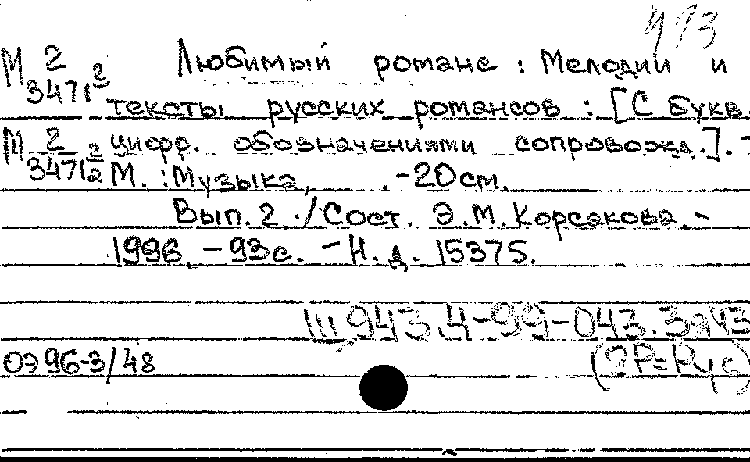 493
М 2/3471 2 Любимый романс : Мелодии и
тексты русских романсов : [С букв.
М 2/3471 2/2 цифр. обозначениями сопровожд.]. -
М. : Музыка, . -20см.
Вып. 2 ./Сост. Э.М. Корсакова.-
1996. -93с. -Н.д. 15375.
Ш943.4-99-043.3я43
ОЭ96-3/48 (2Р=Рус)